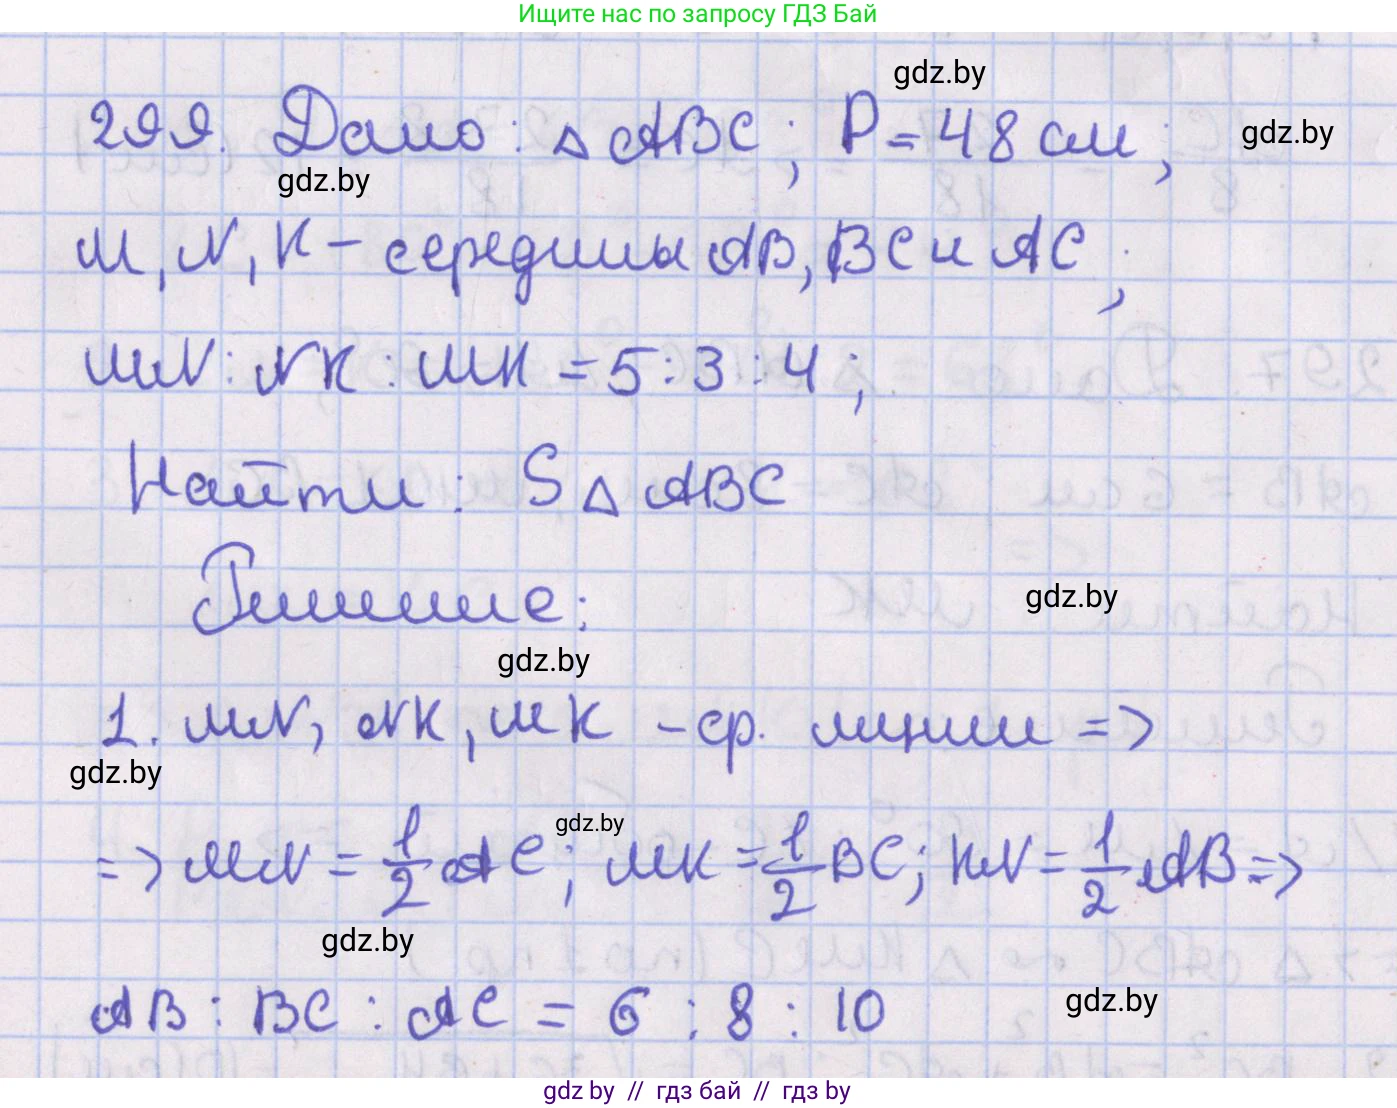 Ищите нас по запросу ГДЗ Бай
gdz.by
299. Дано: △ ABC; P = 48 см;
gdz.by
gdz.by
M, N, K – середины AB, BC и AC;
MN : NK : MK = 5 : 3 : 4;
Найти: S △ ABC
Решение:
gdz.by
gdz.by
1. MN, NK, MK – ср. линии =>
gdz.by
gdz.by
=> MN = 1/2 AC; MK = 1/2 BC; KN = 1/2 AB =>
gdz.by
AB : BC : AC = 6 : 8 : 10
gdz.by
gdz by // гдз бай // гдз by